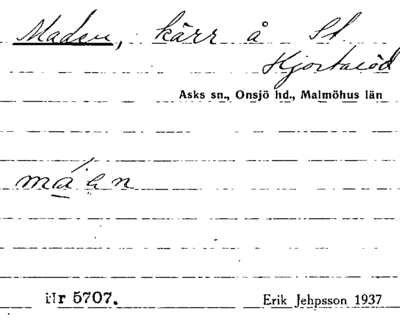 Maden, kärr å St
Hjortaröd
Asks sn., Onsjö hd., Malmöhus län
Nr 5707.
Erik Jehpsson 1937